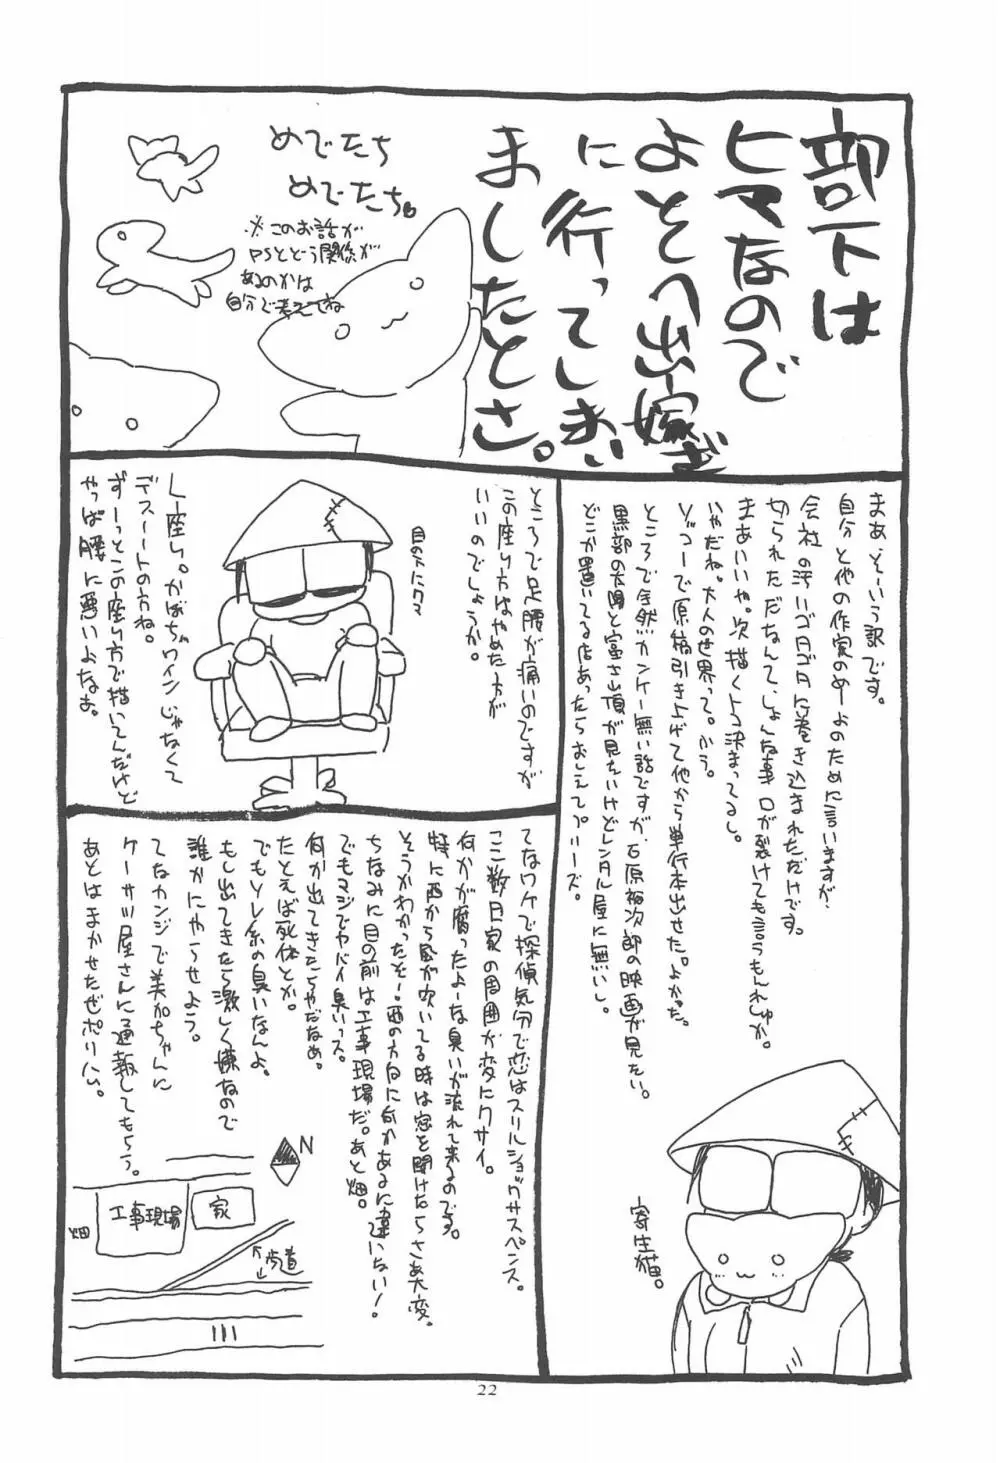 部下は
ヒマなので
よそへ出嫁ぎ
に行ってしまい
ましたとさ。
めでたち
めでたち。
※このお話が
PSとどう関係が
あるのかは
自分で考えてね
まあ、そーいう訳です。
自分と他の作家のめーよのために言いますが、
会社の汚いゴタゴタに巻き込まれただけです。
切られただなんて、しょんな事口が裂けても言うもんれしゅか。
まあいいや。次描くトコ決まってるし。
いやだね。大人の世界って。ふう。
ソッコーで原稿引き上げて他から単行本出せた。よかった。
ところで全然カンケー無い話ですが、石原裕次郎の映画が見たい。
黒部の太陽と富士山頂が見たいけどレンタル屋に無いし。
どこか置いてる店あったらおしえてプリーズ。
寄生猫。
ところで足腰が痛いのですが
この座り方はやめた方が
いいのでしょうか。
目の下にクマ
L座り。かぼちゃワインじゃなくて
デスノートの方ね。
ずーっとこの座り方で描いてんだけど
やっぱ腰に悪いよなぁ。
てなワケで探偵気分で恋はスリルショックサスペンス。
ここ数日家の周囲が変にクサイ。
何かが腐ったよーな臭いが流れて来るのです。
特に西から風が吹いてる時は窓を開けたらさあ大変。
そうかわかったぞ!西の方向に何かあるに違いない!
ちなみに目の前は工事現場だ。あと畑。
でもマジでヤバイ臭いっス。
何か出てきたらやだなぁ。
たとえば死体とか。
でもソレ系の臭いなんよ。
もし出てきたら激しく嫌なので
誰かにやらせよう。
てなカンジで美加ちゃんに
ケーサツ屋さんに通報してもらう。
あとはまかせたぜポリさん。
N
畑
工事現場
家
歩道
22